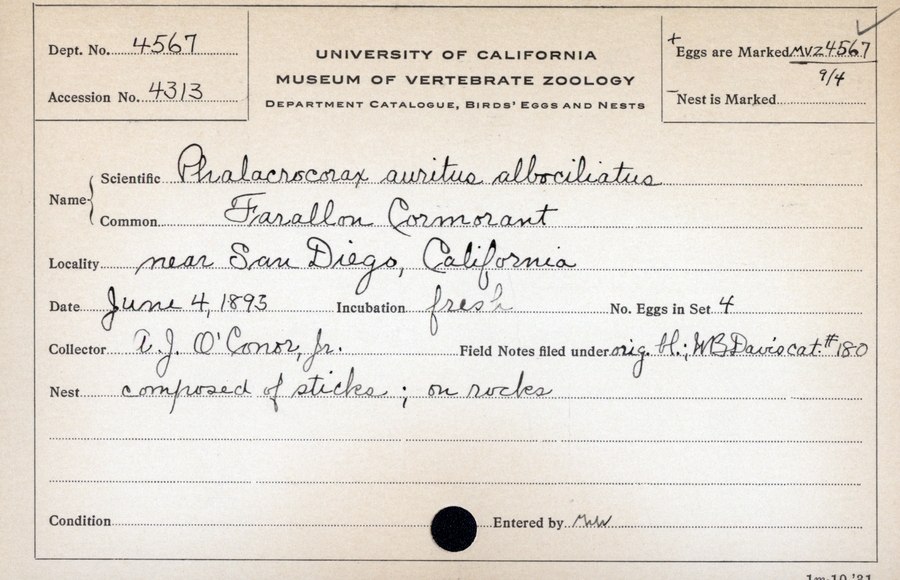 Dept. No. 4567
Accession No. 4313
UNIVERSITY OF CALIFORNIA
MUSEUM OF VERTEBRATE ZOOLOGY
DEPARTMENT CATALOGUE, BIRDS' EGGS AND NESTS
+ Eggs are Marked MVZ4567
9/4
- Nest is Marked
Name
Scientific Phalacrocorax auritus albociliatus
Common Farallon Cormorant
Locality near San Diego, California
Date June 4, 1893 Incubation fresh No. Eggs in Set 4
Collector A.J. O'Conor, Jr. Field Notes filed under orig. bl.; WBDavis cat. #180
Nest composed of sticks; on rocks
Condition Entered by
1m-10,'31